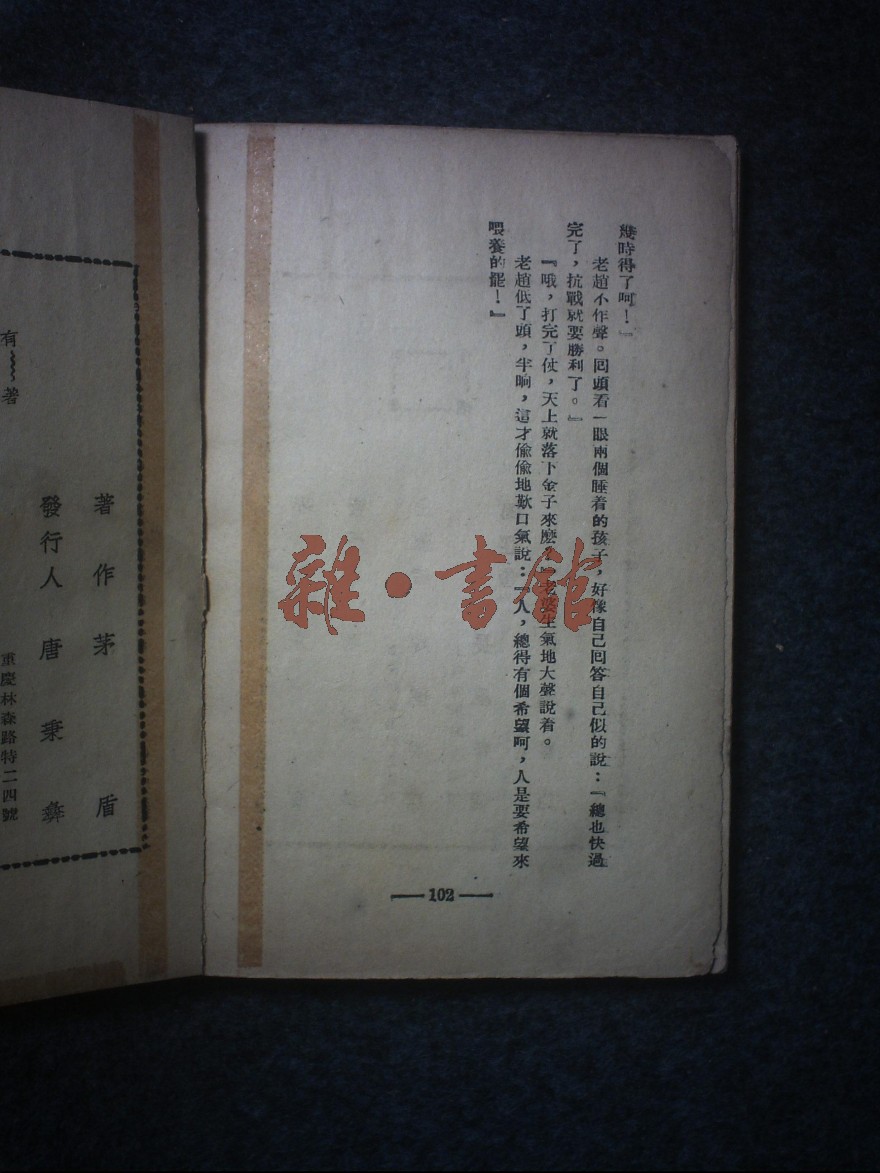 幾時得了呵！』
老趙不作聲。囘頭看一眼兩個睡着的孩子，好像自己囘答自己似的說：『總也快過
完了，抗戰就要勝利了。』
『哦，打完了仗，天上就落下金子來麽？』老婆生氣地大聲說着。
老趙低了頭，半晌，這才偷偷地歎口氣說：『人，總得有個希望呵，人是要希望來
喂養的罷！』
102
雜·書館
著作茅盾
發行人唐秉彝
重慶林森路特二四號
有 著